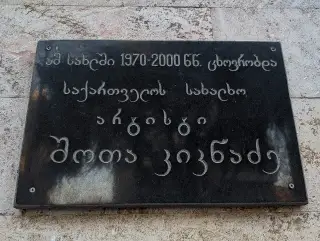 ამ სახლში 1970-2000 წწ. ცხოვრობდა
საქართველოს სახალხო
არტისტი
შოთა კიკნაძე